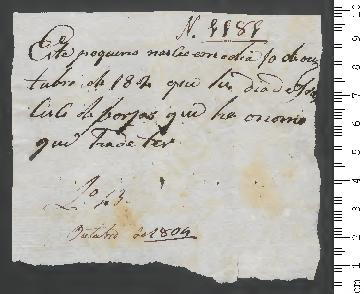 N. 1181
Este pequeno nasceu em o dia 10 de ou
tubro de 1804 que he dia de S. Fran
cisco de borjas que he o nome
que hade ter
Lo. 3.
Outubro de 1804